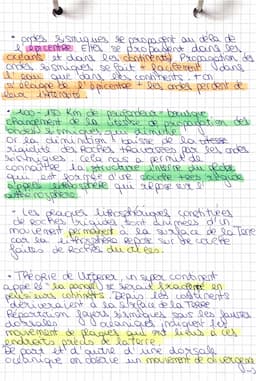 • ondes sismiques se propagent au delà de
l'épicentre. Elles se propagent dans les
océans et dans les continents. Propagation des
ondes sismiques se fait + facilement dans
l'eau que dans les continents. + on
s'éloigne de l'épicentre + les ondes perdent de
leur intensité.
• 100 - 150 km de profondeur = 
changement de la vitesse de propagation des
ondes sismiques qui diminue
Or la diminution / baisse de la vitesse
des roches traversées par les ondes
sismiques. cela nous a permis de
connaître la structure interne du globe
qui est formée d'une couche rigide
appelée lithosphère qui repose sur l'
asthénosphère
• Les plaques lithosphériques constituées
de roches rigides sont animées d'un
mouvement permanent à la surface de la Terre
car la lithosphère repose sur une couche
faite de roches ductiles.
• Théorie de Wegener, un super continent
appelé "la pangée" se serait fracturé en
plusieurs continents. Depuis les continents
dériveraient à la surface de la Terre.
Répartition foyers sismiques sous les fosses
dorsales océaniques indiquent les
mouvement de plaques qui ont lieu à ces
endroits précis de la terre.
De part et d'autre d'une dorsale
océanique on observe un mouvement de divergence